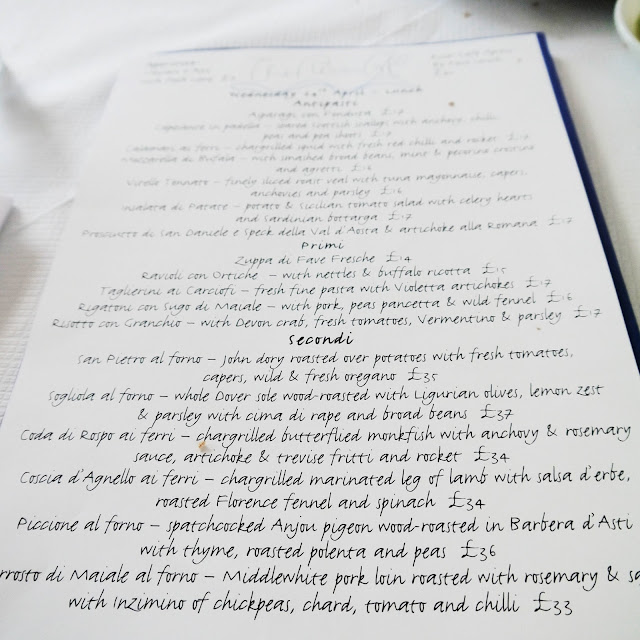 Wednesday 14th April - Lunch
Antipasti
Asparagi con Fonduta £17
Capesante in padella – seared Scottish scallops with anchovy, chilli,
peas and pea shoots £17
Calamari ai ferri – chargrilled squid with fresh red chilli and rocket £17
Mozzarella di Bufala – with smashed broad beans, mint & pecorino crostino
and agretti £16
Vitello Tonnato – finely sliced roast veal with tuna mayonnaise, capers,
anchovies and parsley £16
Insalata di Patate – potato & Sicilian tomato salad with celery hearts
and Sardinian bottarga £17
Prosciutto di San Daniele e Speck della Val d'Aosta & artichoke alla Romana £17
Primi
Zuppa di Fave Fresche £14
Ravioli con Ortiche – with nettles & buffalo ricotta £15
Taglierini ai Carciofi – fresh fine pasta with Violetta artichokes £17
Rigatoni con Sugo di Maiale – with pork, peas pancetta & wild fennel £16
Risotto con Granchio – with Devon crab, fresh tomatoes, Vermentino & parsley £17
Secondi
San Pietro al forno – John dory roasted over potatoes with fresh tomatoes,
capers, wild & fresh oregano £35
Sogliola al forno – whole Dover sole wood-roasted with Ligurian olives, lemon zest
& parsley with cima di rape and broad beans £37
Coda di Rospo ai ferri – chargrilled butterflied monkfish with anchovy & rosemary
sauce, artichoke & trevise fritti and rocket £34
Coscia d'Agnello ai ferri – chargrilled marinated leg of lamb with salsa d'erbe,
roasted Florence fennel and spinach £34
Piccione al forno – spatchcocked Anjou pigeon wood-roasted in Barbera d'Asti
with thyme, roasted polenta and peas £36
rrosto di Maiale al forno – Middlewhite pork loin roasted with rosemary & sa
with Inzimino of chickpeas, chard, tomato and chilli £33